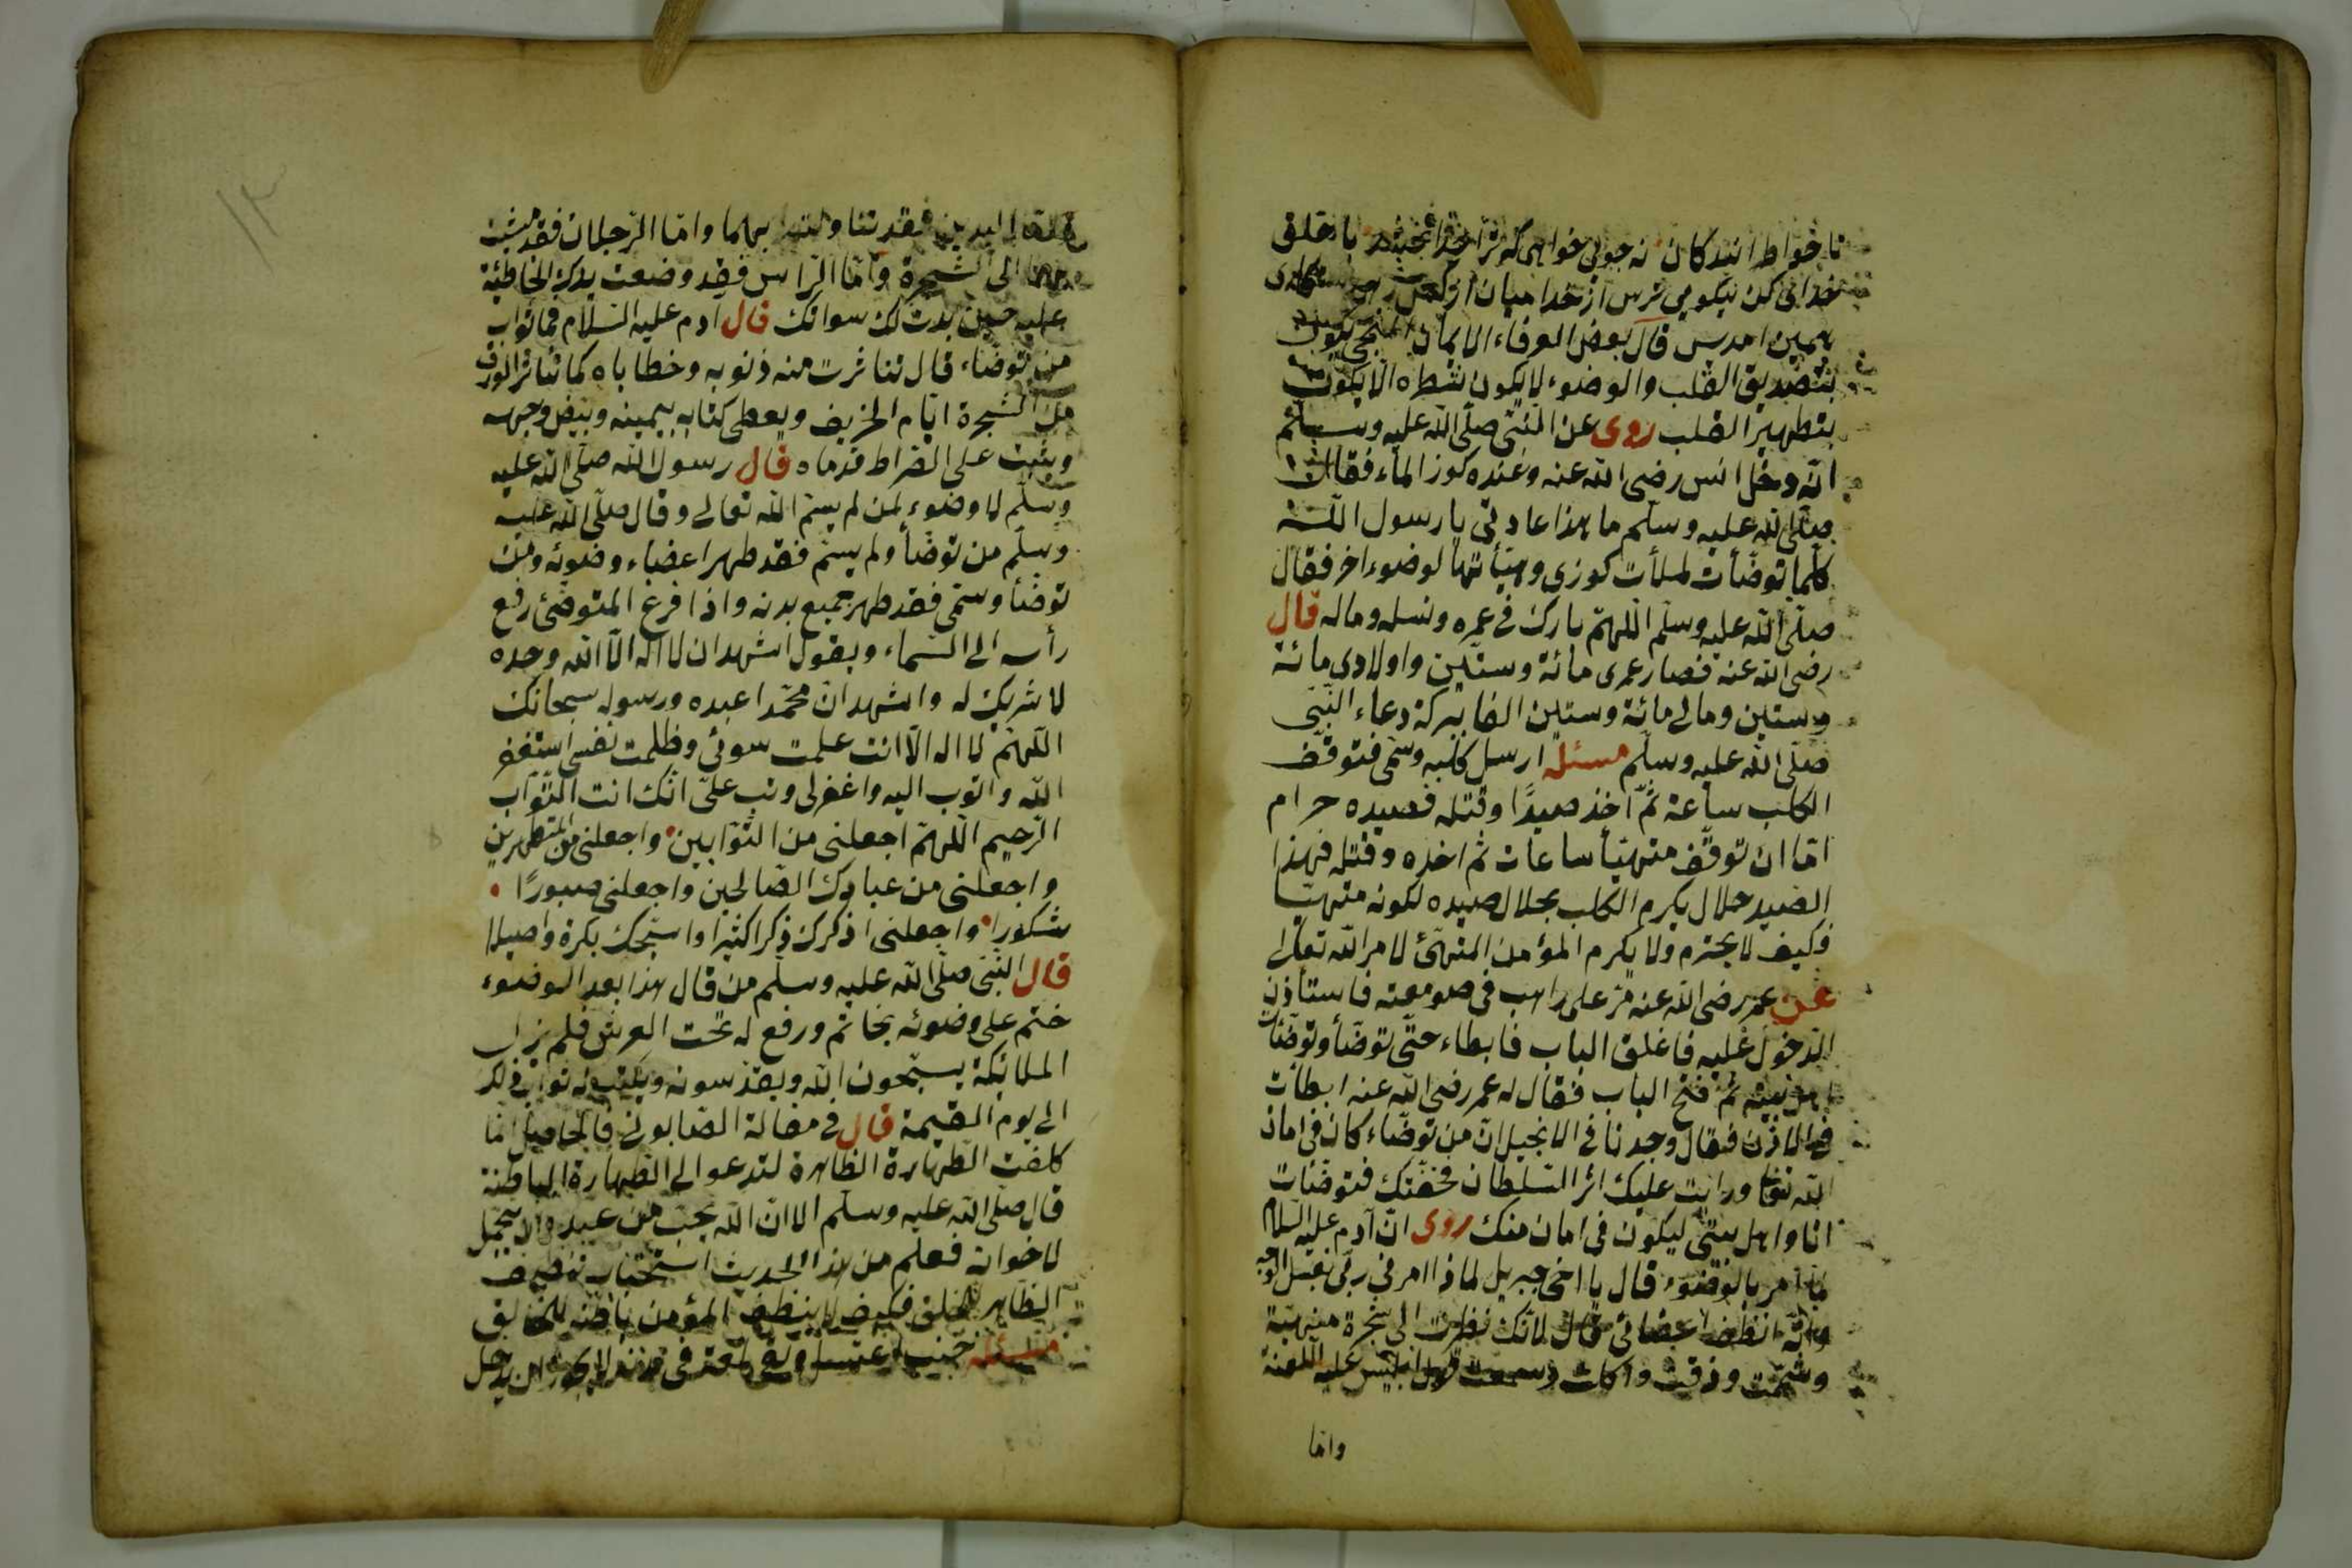 نه جوئی خواهی که ترا خدا بخشد با خلق
خدا کن نیکویی ترس از خدا میان
همین آمدس قال بعض العرفاء الایمان لا یکون
بتصدیق القلب والوضوء لا یکون شطره الا یکون
بتطهیر القلب روی عن النبی صلّی الله علیه وسلّم
انّه دخل انس رضی الله عنه وعنده کوز الماء فقال
صلّی الله علیه وسلّم ما هذا عادتی یا رسول الله
کلّما توضّأت لملأت کوزی وهیّأتها لوضوء اخر فقال
صلّی الله علیه وسلّم اللّهمّ بارک فی عمره ونسله وماله قال
رضی الله عنه فصار عمری مائة وستّین واولادی مائة
وستین ومالی مائة وستین الفا ببرکة دعاء النّبیّ
صلّی الله علیه وسلّم مسئلة ارسل کلبه وسمّی فتوقّف
الکلب ساعة ثمّ اخذ صیدًا وقتله فصیده حرام
امّا ان توقّف متهیّأ ساعات ثم اخذه وقتله فهذا
الصید حلال یکرم الکلب بحلال صیده لکونه متهیّا
فکیف لا یحترم ولا یکرم المؤمن المتهیّئ لامر الله تعالی
عن عمر رضی الله عنه مرّ علی راهب فی صومعته فاستأذن
الدّخول علیه فاغلق الباب فابطاء حتّی توضّأ وتوضّأت
اهل بیته ثمّ فتح الباب فقال له عمر رضی الله عنه ابطأت
فی الاذن فقال وجدنا فی الانجیل انّ من توضّاء کان فی امان
الله تعالی ورایت علیک اثر السّلطان فخفتک فتوضّئات
انا واهل بیتی لیکون فی امان منک روی انّ آدم علیه السلام
لمّا امر بالوضوء قال یا اخی جبریل لماذا امرنی ربّی بغسل الوجه
وانّه انظف اعضائی قال لانّک نظرت الی شجرة منهیّة
وشممت وذقت واکلت وسمعت قول ابلیس علیه اللعنة
وامّا
۱۲
غسل الیدین فقد تناولت بهما وامّا الرّجلان فقد مشیت
بهما الی الشّجرة وامّا الرّاس فقد وضعت یدک الخاطئة
علیه حین بدت لک سواتک قال آدم علیه السّلام فما ثواب
من توضّاء قال تناثرت منه ذنوبه وخطایاه کما تناثر الورق
من الشّجرة ایّام الخریف ویعطی کتابه بیمینه ویبیّض وجهه
ویثبت علی الصّراط قدماه قال رسول الله صلّی الله علیه
وسلّم لا وضوء لمن لم یسمّ الله تعالی وقال صلّی الله علیه
وسلّم من توضّأ ولم یسمّ فقد طهر اعضاء وضوئه ومن
توضّأ وسمّی فقد طهر جمیع بدنه واذا فرغ المتوضّئ رفع
رأسه الی السّماء ویقول اشهد ان لا اله الّا الله وحده
لا شریک له واشهد انّ محمّدا عبده ورسوله سبحانک
اللّهمّ لا اله الّا انت عملت سوئی وظلمت نفسی استغفر
الله واتوب الیه واغفر لی وتب علیّ انّک انت التّوّاب
الرّحیم اللّهمّ اجعلنی من التّوّابین واجعلنی من المتطهّرین
واجعلنی من عبادک الصّالحین واجعلنی صبورًا
شکورا واجعلنی اذکرک ذکرا کثیرا واسبّحک بکرة واصیلا
قال النّبیّ صلّی الله علیه وسلّم من قال هذا بعد الوضوء
ختم علی وضوئه بخاتم ورفع له تحت العرش فلم یزل
الملائکة یسبّحون الله ویقدّسونه ویکتب له ثواب ذلک
الی یوم القیمة قال فی مقالة الصّابونی فالحاصل انّما
کلفت الطّهارة الظّاهرة لتدعو الی الطّهارة الباطنة
قال صلّی الله علیه وسلّم الا ان الله یحبّ من عبده ان یتجمّل
لاخوانه فعلم من هذا الحدیث استحباب تنظیف
الظّاهر للخلق فکیف لا ینظف المؤمن باطنه للخالق
مسئلة جنب اغتسل وبقی لمعة فی بدنه لا یجوز ان یدخل